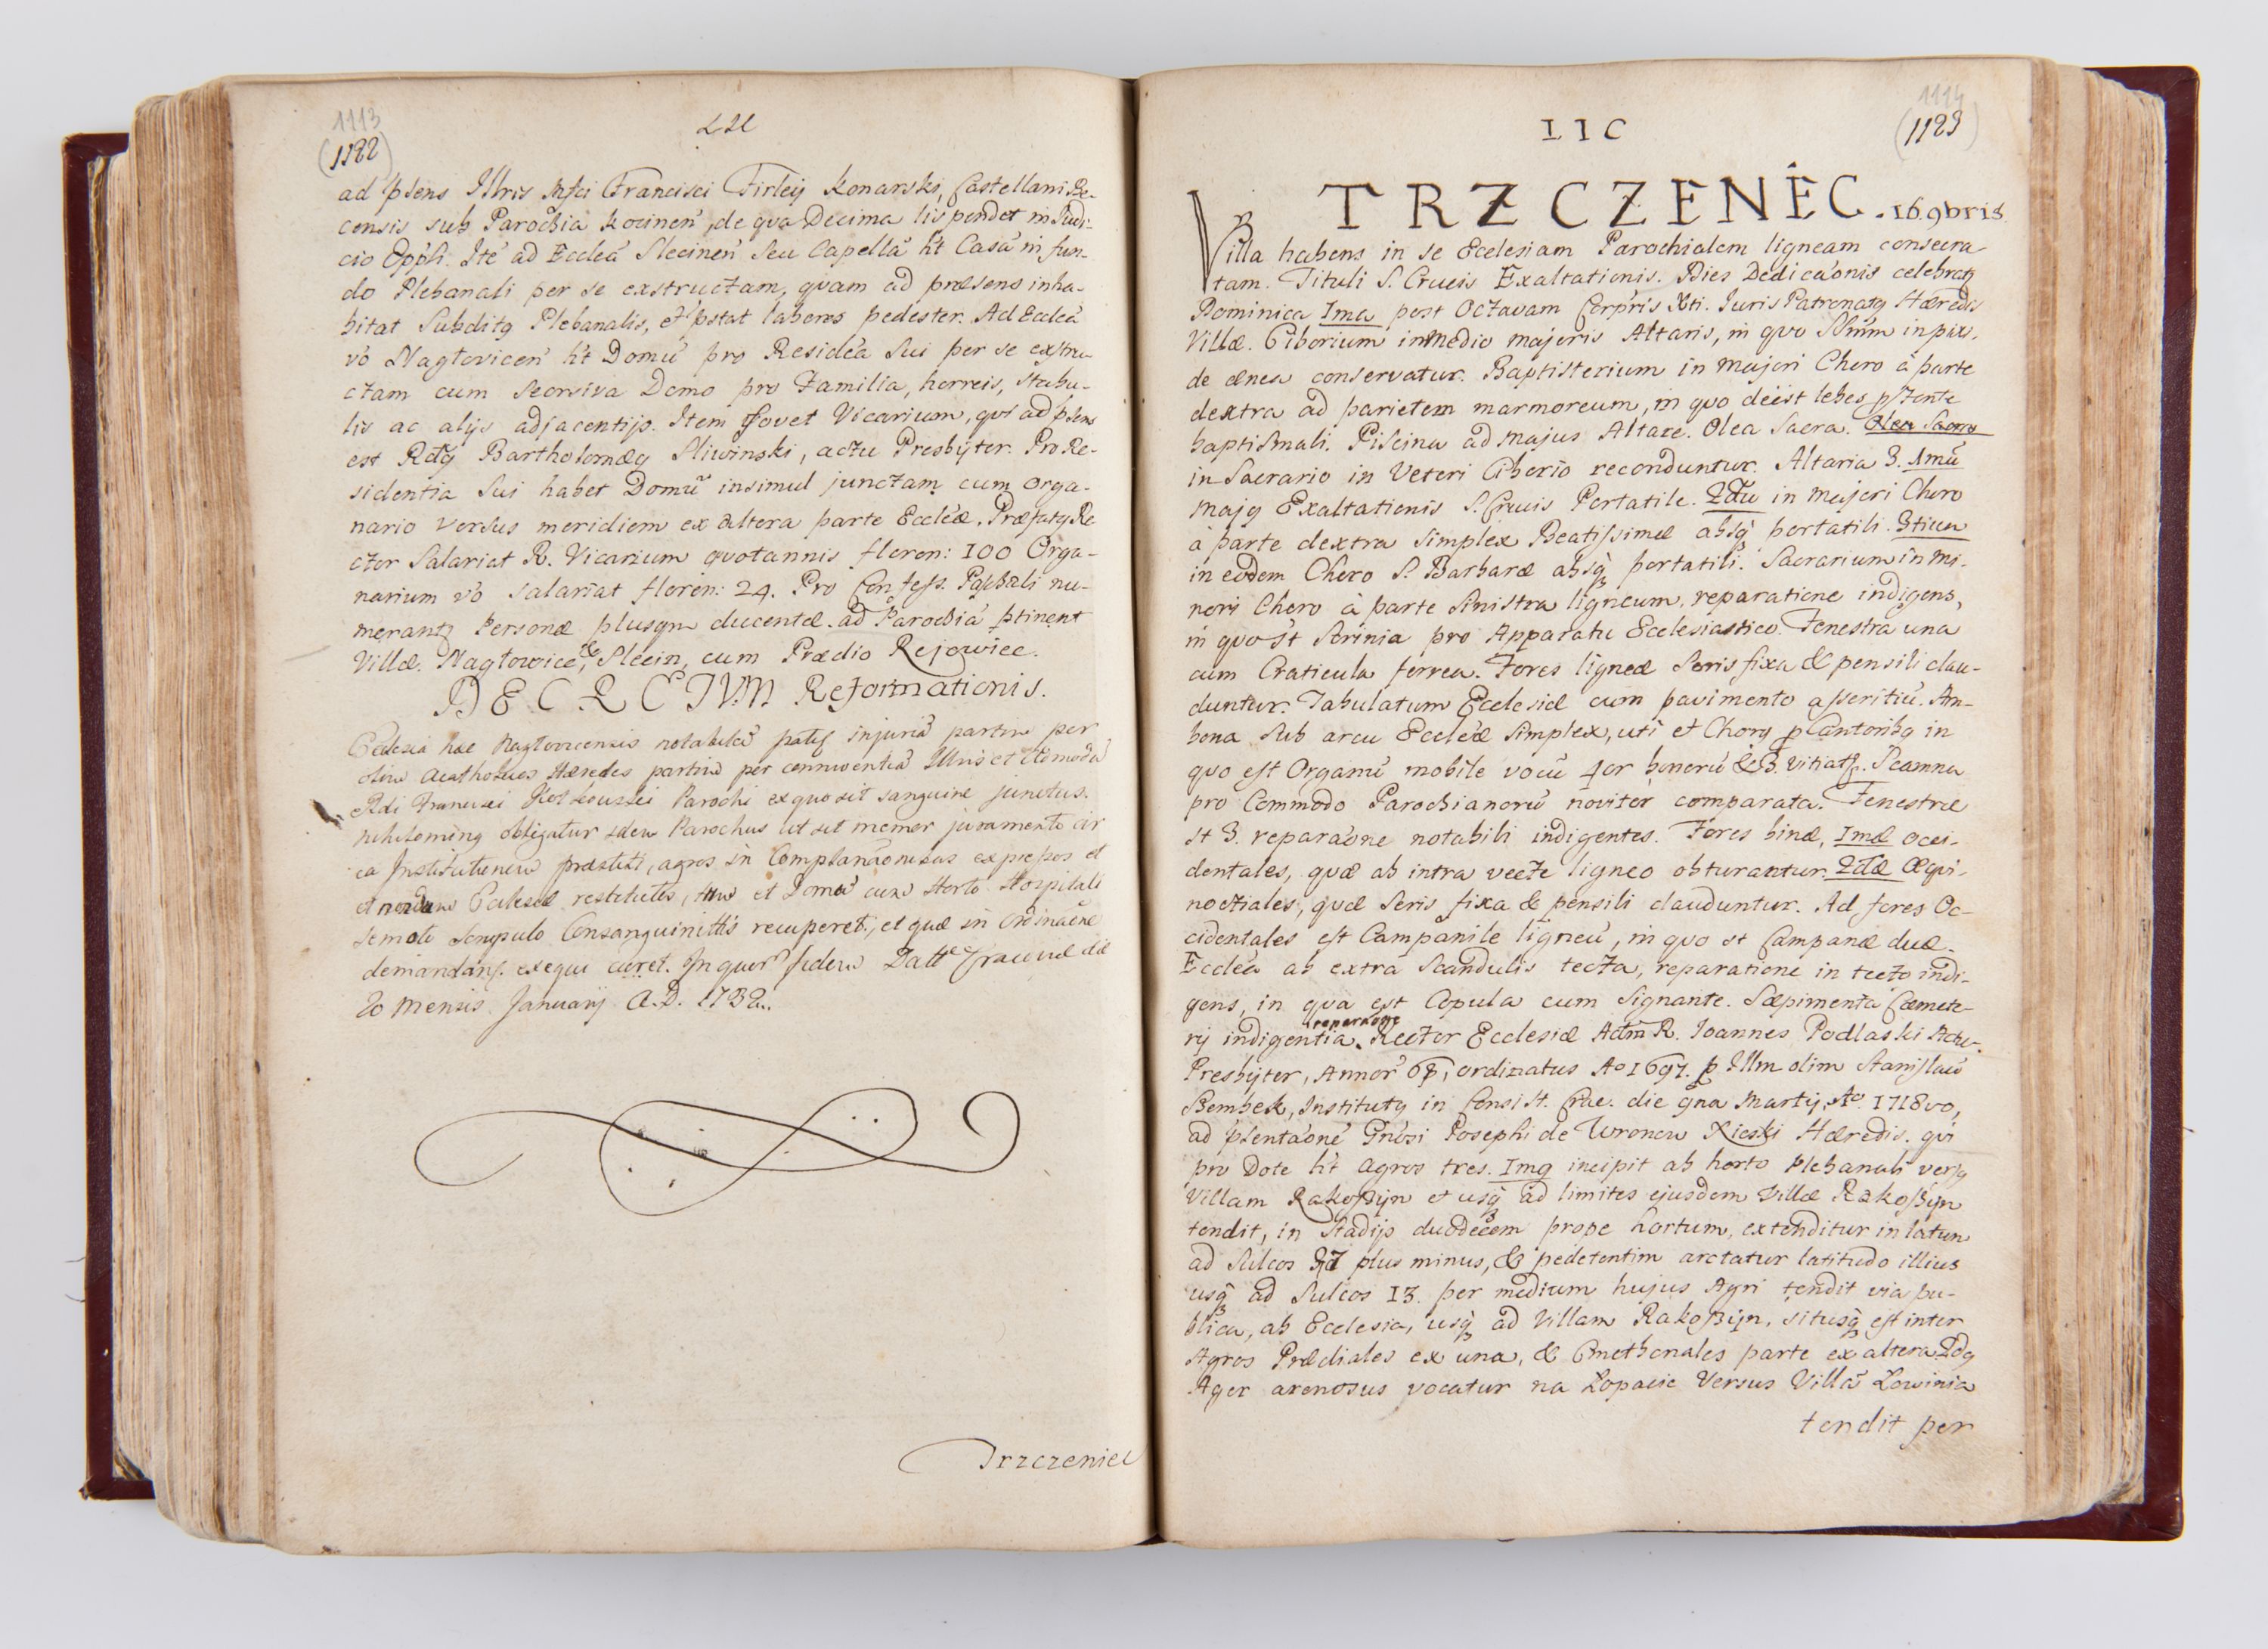 1113
(1122)
ad pſens Illris Mfci Francisci Firleij Konarski, Castellani Be-
censis sub Parochia Kocinen, de qva Decima lis pendet in Judi-
cio Offli. Ite ad Eccleã Slecinen Seu Capellã ht Casã in fun-
do Plebanali per se exstructam, quam ad præsens inha-
bitat Subditg Plebanalis, et pstat labores pedester. Ad Eccleã
vo Nagłovicen ht Domũ pro Residẽa Sui per se exstru-
ctam cum Seorsiva Domo pro Familia, horreis, Stabu-
lis ac alijs adjacentijs. Item fovet Vicarium, qvi ad pſens
est Rdg Bartholomæg Sliwinski, actu Presbyter. Pro Re-
sidentia Sui habet Domũ insimul junctam cum Orga-
nario versus meridiem ex altera parte Eccleæ. Præfatg Re
ctor Salariat R. Vicarium qvotannis floren: 100 Orga-
narium vo Salariat floren: 24. Pro Confess. Paschali nu-
merantz Personæ plusqm ducentæ. ad Parochiã ptinent
Villæ. Nagłowice, & Slecin, cum Prædio Rejowiec.
DECRETVM Reformationis.
Ecclesia hæc Nagłovicensis notabilẽ patg injuriã partim per
olim Acatholicos Hæredes partim per conniventiã Illris et
Rdi Francisci Parochi ex quo sit sanguine junctus.
nihilominq obligatur idem Parochus ut sit memor juramenti cir
ca Institutionem præstiti, agros in
Ecclesiæ restitutos, tum et Domũ cum Horto Hospitali
semoto scrupulo Consanguinittis recuperet, et quæ in Ordinãone
demandans. exequi curet. In quor fidem Datt Cracoviæ die
20 Mensis Januarij A.D. 1732.
Trzczeniec
1114
IIC (1123)
TRZCZENIEC. 16. 9bris
Villa habens in se Ecclesiam Parochialem ligneam consecra-
tam. Tituli S. Crucis Exaltationis. Dies Dedicãonis celebratz
Dominica Ima post Octavam Corpris Xti. Juris Patronatg Hæredis
Villæ. Ciborium in medio majoris Altaris, in qvo Sſmũm in pixi-
de ænea conservatur. Baptisterium in Majori Choro à parte
dextra ad parietem marmoreum, in qvo deest lebes p fonte
baptiſmali. Piſcina ad majus Altare. Olea Sacra. Olea Sacra
in Sacrario in Veteri Ciborio reconduntur. Altaria 3. 1mũ
Majg Exaltationis S. Crucis Portatile. 2dũ in Majori Choro
à parte dextra Simplex Beatiſsimæ absq portatili. 3tium
in eodem Choro S. Barbaræ absq portatili. Sacrarium in Mi-
nori Choro à parte Sinistra ligneum, reparatione indigens,
in qvo st Scrinia pro Apparatu Ecclesiastico. Fenestra una
cum Craticula ferrea. Fores ligneæ Seris fixa & pensili clau-
duntur. Tabulatum Ecclesiæ cum pavimento aſseritiũ. Am-
bona Sub arcu Eccleæ Simplex, uti et Chorg p Cantoribg in
qvo est Organũ mobile vocũ 4or bonorũ & 3. vitiat. Scamna
pro Commodo Parochianorũ noviter comparata. Fenestræ
st 3. reparãone notabili indigentes. Fores binæ, Imæ occi-
dentales, qvæ ab intra vecte ligneo obturantur. 2dæ Æqvi-
noctiales, qvæ Seris fixa & pensili clauduntur. Ad fores Oc-
cidentales est Campanile ligneũ, in qvo st Campanæ duæ.
Eccleã ab extra Scandulis tecta, reparatione in tecto indi-
gens, in qva est Copula cum Signante. Sæpimenta Cæmete-
reparãone
rij indigentia. Rector Ecclesiæ Adm R. Joannes Podlaski Actu-
Presbyter, Annor 68, ordinatus Ao 1697. p Illm olim Stanislaũ
Bembek, Institutg in Consist. Crac. die 9na Martij, Ao. 1718vo,
ad pſentãonẽ Gnrosi Josephi de Wronow Kicski Hæredis. qvi
pro Dote ht agros tres. Img incipit ab horto Plebanali versg
Villam Rakoſzyn et usq ad limites ejusdem Villæ Rakoſzyn
tendit, in Stadijs duodecem prope hortum, extenditur in latum
ad Sulcos 37 plus minus, & pedetentim arctatur latitudo illius
usq ad Sulcos 13. per medium hujus Agri tendit via pu-
blica, ab Ecclesia, usq ad Villam Rakoſzyn, situsq est inter
Agros Prædiales ex una, & Cmethonales parte ex altera 2dg
Ager arenosus vocatur na Łopacie Versus Villã Łowinia
tendit per